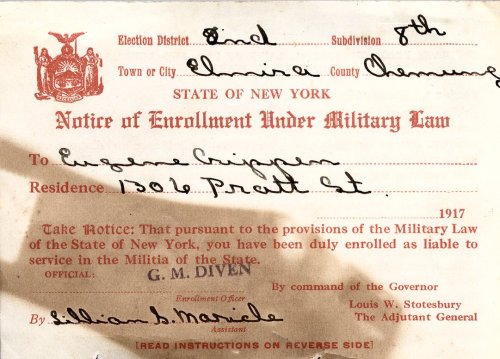 Election District 2nd Subdivision 8th
Town or City Elmira County Chemung
STATE OF NEW YORK
Notice of Enrollment Under Military Law
To Eugene Crippen
Residence 1306 Pratt St.
1917
Take Notice: That pursuant to the provisions of the Military Law
of the State of New York, you have been duly enrolled as liable to
service in the Militia of the State.
OFFICIAL:
G. M. DIVEN
Enrollment Officer
By command of the Governor
Louis W. Stotesbury
The Adjutant General
By Lillian S. Maricle
Assistant
[READ INSTRUCTIONS ON REVERSE SIDE]